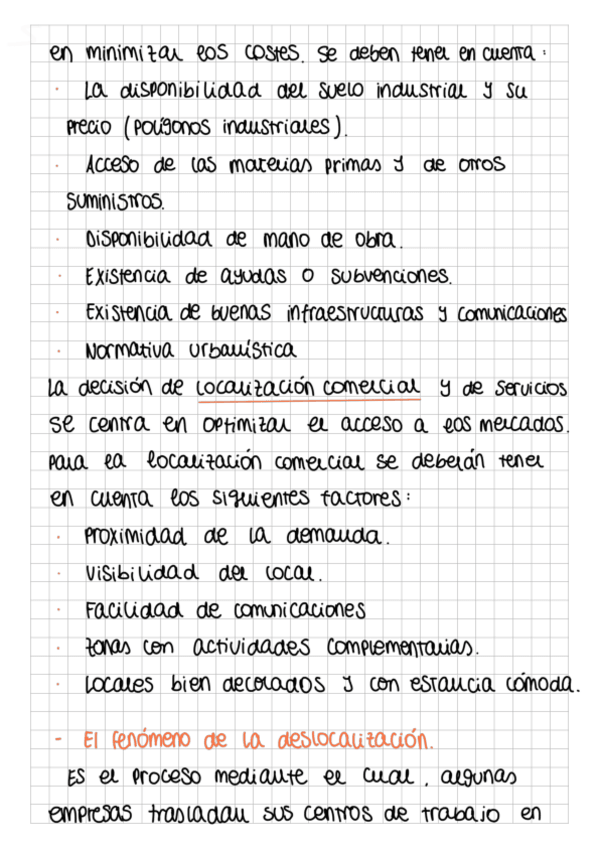 en minimizar los costes. Se deben tener en cuenta:
· La disponibilidad del suelo industrial y su
precio (polígonos industriales).
· Acceso de las materias primas y de otros
suministros.
· Disponibilidad de mano de obra.
· Existencia de ayudas o subvenciones.
· Existencia de buenas infraestructuras y comunicaciones
· Normativa urbanística
La decisión de localización comercial y de servicios
se centra en optimizar el acceso a los mercados.
Para la localización comercial se deberán tener
en cuenta los siguientes factores:
· Proximidad de la demanda.
· Visibilidad del local.
· Facilidad de comunicaciones
· Zonas con actividades complementarias.
· Locales bien decorados y con estancia cómoda.
- El fenómeno de la deslocalización.
Es el proceso mediante el cual, algunas
empresas trasladan sus centros de trabajo en